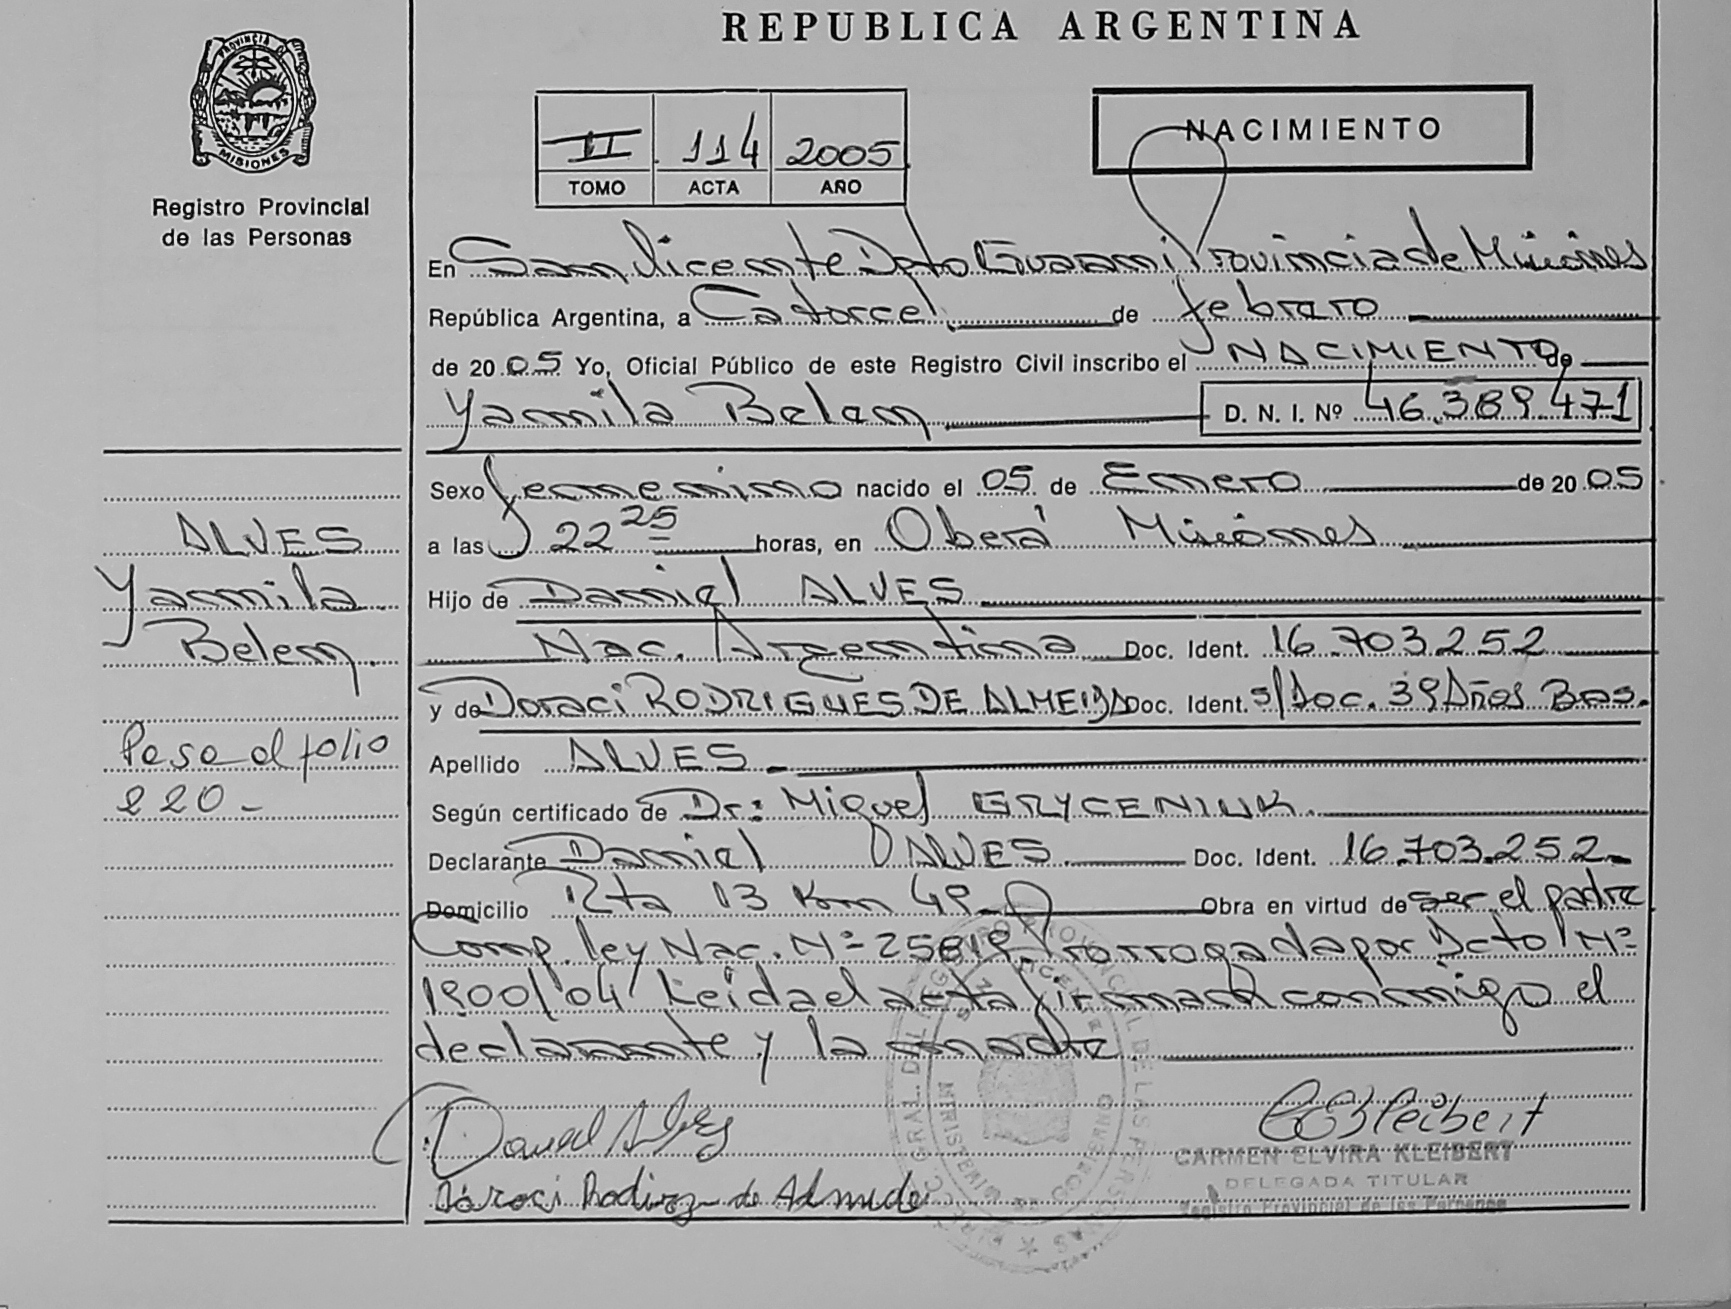 REPUBLICA ARGENTINA
PROVINCIA DE
MISIONES
Registro Provincial
de las Personas
II 114 2005
TOMO ACTA AÑO
NACIMIENTO
En San Vicente Dpto Guarani Provincia de Misiones
República Argentina, a Catorce de febraro
de 2005 Yo, Oficial Público de este Registro Civil inscribo el NACIMIENTO de
Yamila Belem D. N. I. Nº 46.389.471
Sexo femenimo nacido el 05 de Enero de 2005
a las 22 25 horas, en Oberá Misiones
Hijo de Daniel ALVES
Nac. Argentina Doc. Ident. 16.703.252
y de Doraci RODRIGUES DE ALMEIDA Doc. Ident. s/Doc. 39 Años Bras.
Apellido ALVES
Según certificado de Dr: Miguel GRYCENIUK.
Declarante Daniel ALVES Doc. Ident. 16.703.252
Domicilio Rta 13 Km 49 Obra en virtud de ser el padre
Comp. ley Nac. Nº 25819 Prorrogada por Dcto Nº
1900/04 Leida el acta firman conmigo el
declarante y la madre
ALVES
Yamila
Belem
Pasa al folio
220-
Daniel Alves
CARMEN ELVIRA KLEIBERT
DELEGADA TITULAR
Registro Provincial de las Personas